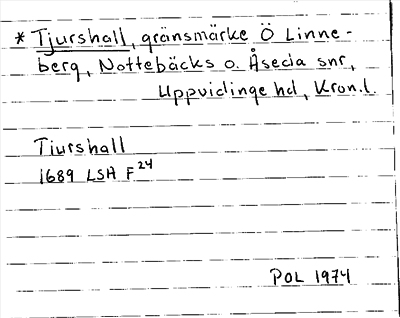 * Tjurshall, gränsmärke Ö Linne-
berg, Nottebäcks o. Åseda snr,
Uppvidinge hd, Kron.l.
Tiurshall
1689 LSA F24
POL 1974